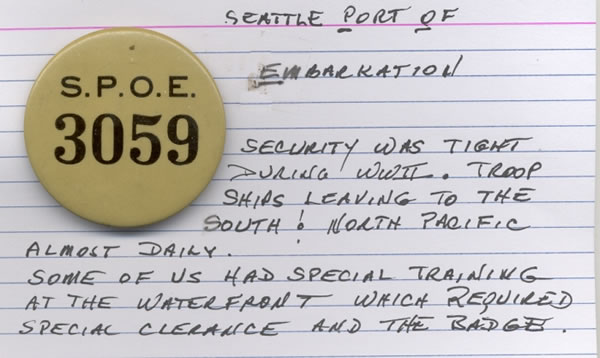 SEATTLE PORT OF
EMBARKATION
S.P.O.E.
3059
SECURITY WAS TIGHT
DURING WWII. TROOP
SHIPS LEAVING TO THE
SOUTH & NORTH PACIFIC
ALMOST DAILY.
SOME OF US HAD SPECIAL TRAINING
AT THE WATERFRONT WHICH REQUIRED
SPECIAL CLERANCE AND THE BADGE.